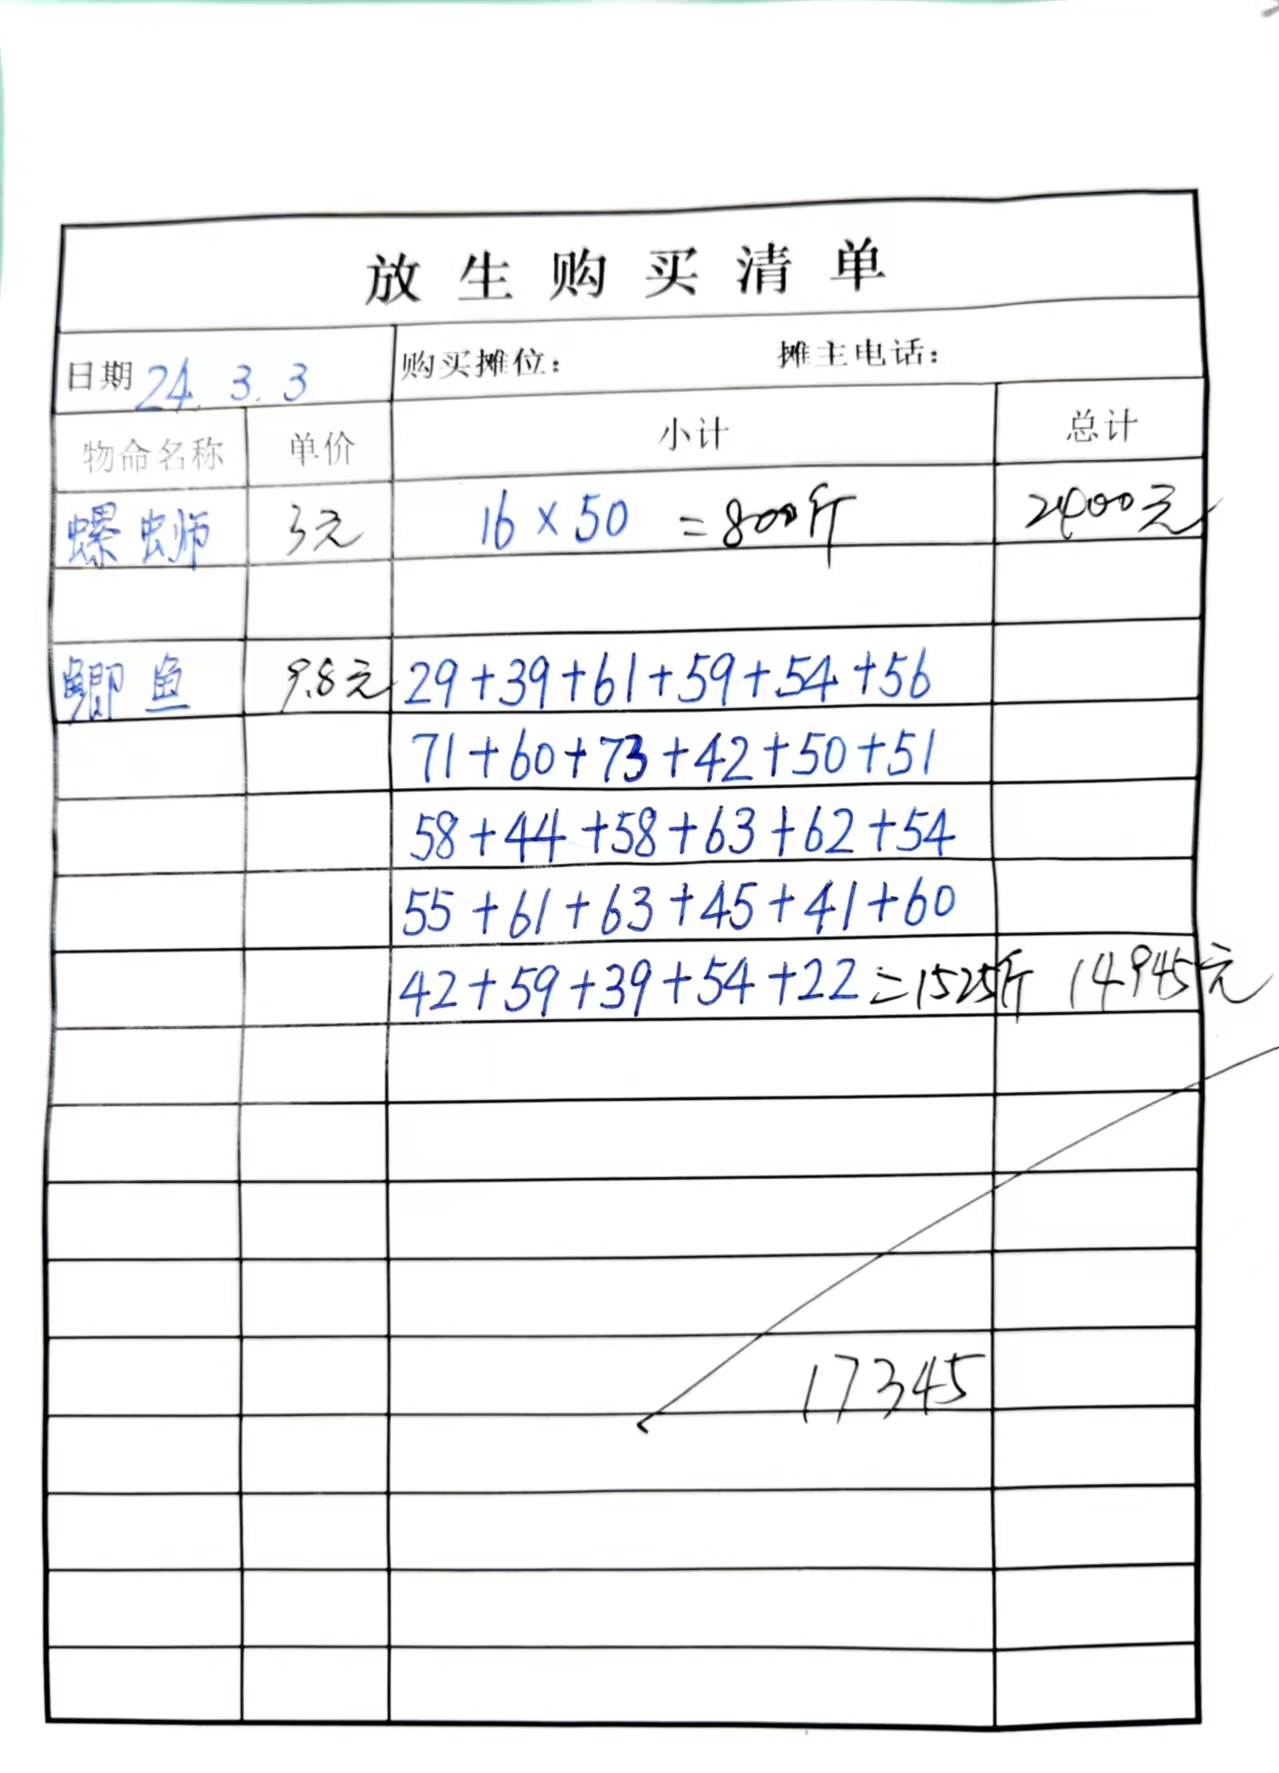 放生购买清单
日期 24.3.3 购买摊位： 摊主电话：
物命名称 单价 小计 总计
螺蛳 3元 16×50 =800斤 2400元
鲫鱼 9.8元 29+39+61+59+54+56
71+60+73+42+50+51
58+44+58+63+62+54
55+61+63+45+41+60
42+59+39+54+22=1525斤 14945元
17345